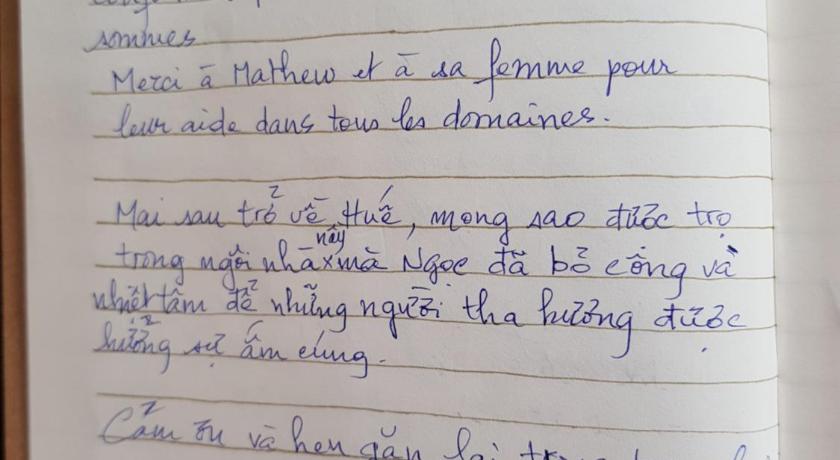 sommes
Merci à Mathew et à sa femme pour
leur aide dans tous les domaines.
Mai sau trở về Huế, mong sao được trọ
trong ngôi nhà này mà Ngọc đã bỏ công và
nhiệt tâm để những người tha hương được
hưởng sự ấm cúng.
Cảm ơn và hẹn gặp lại